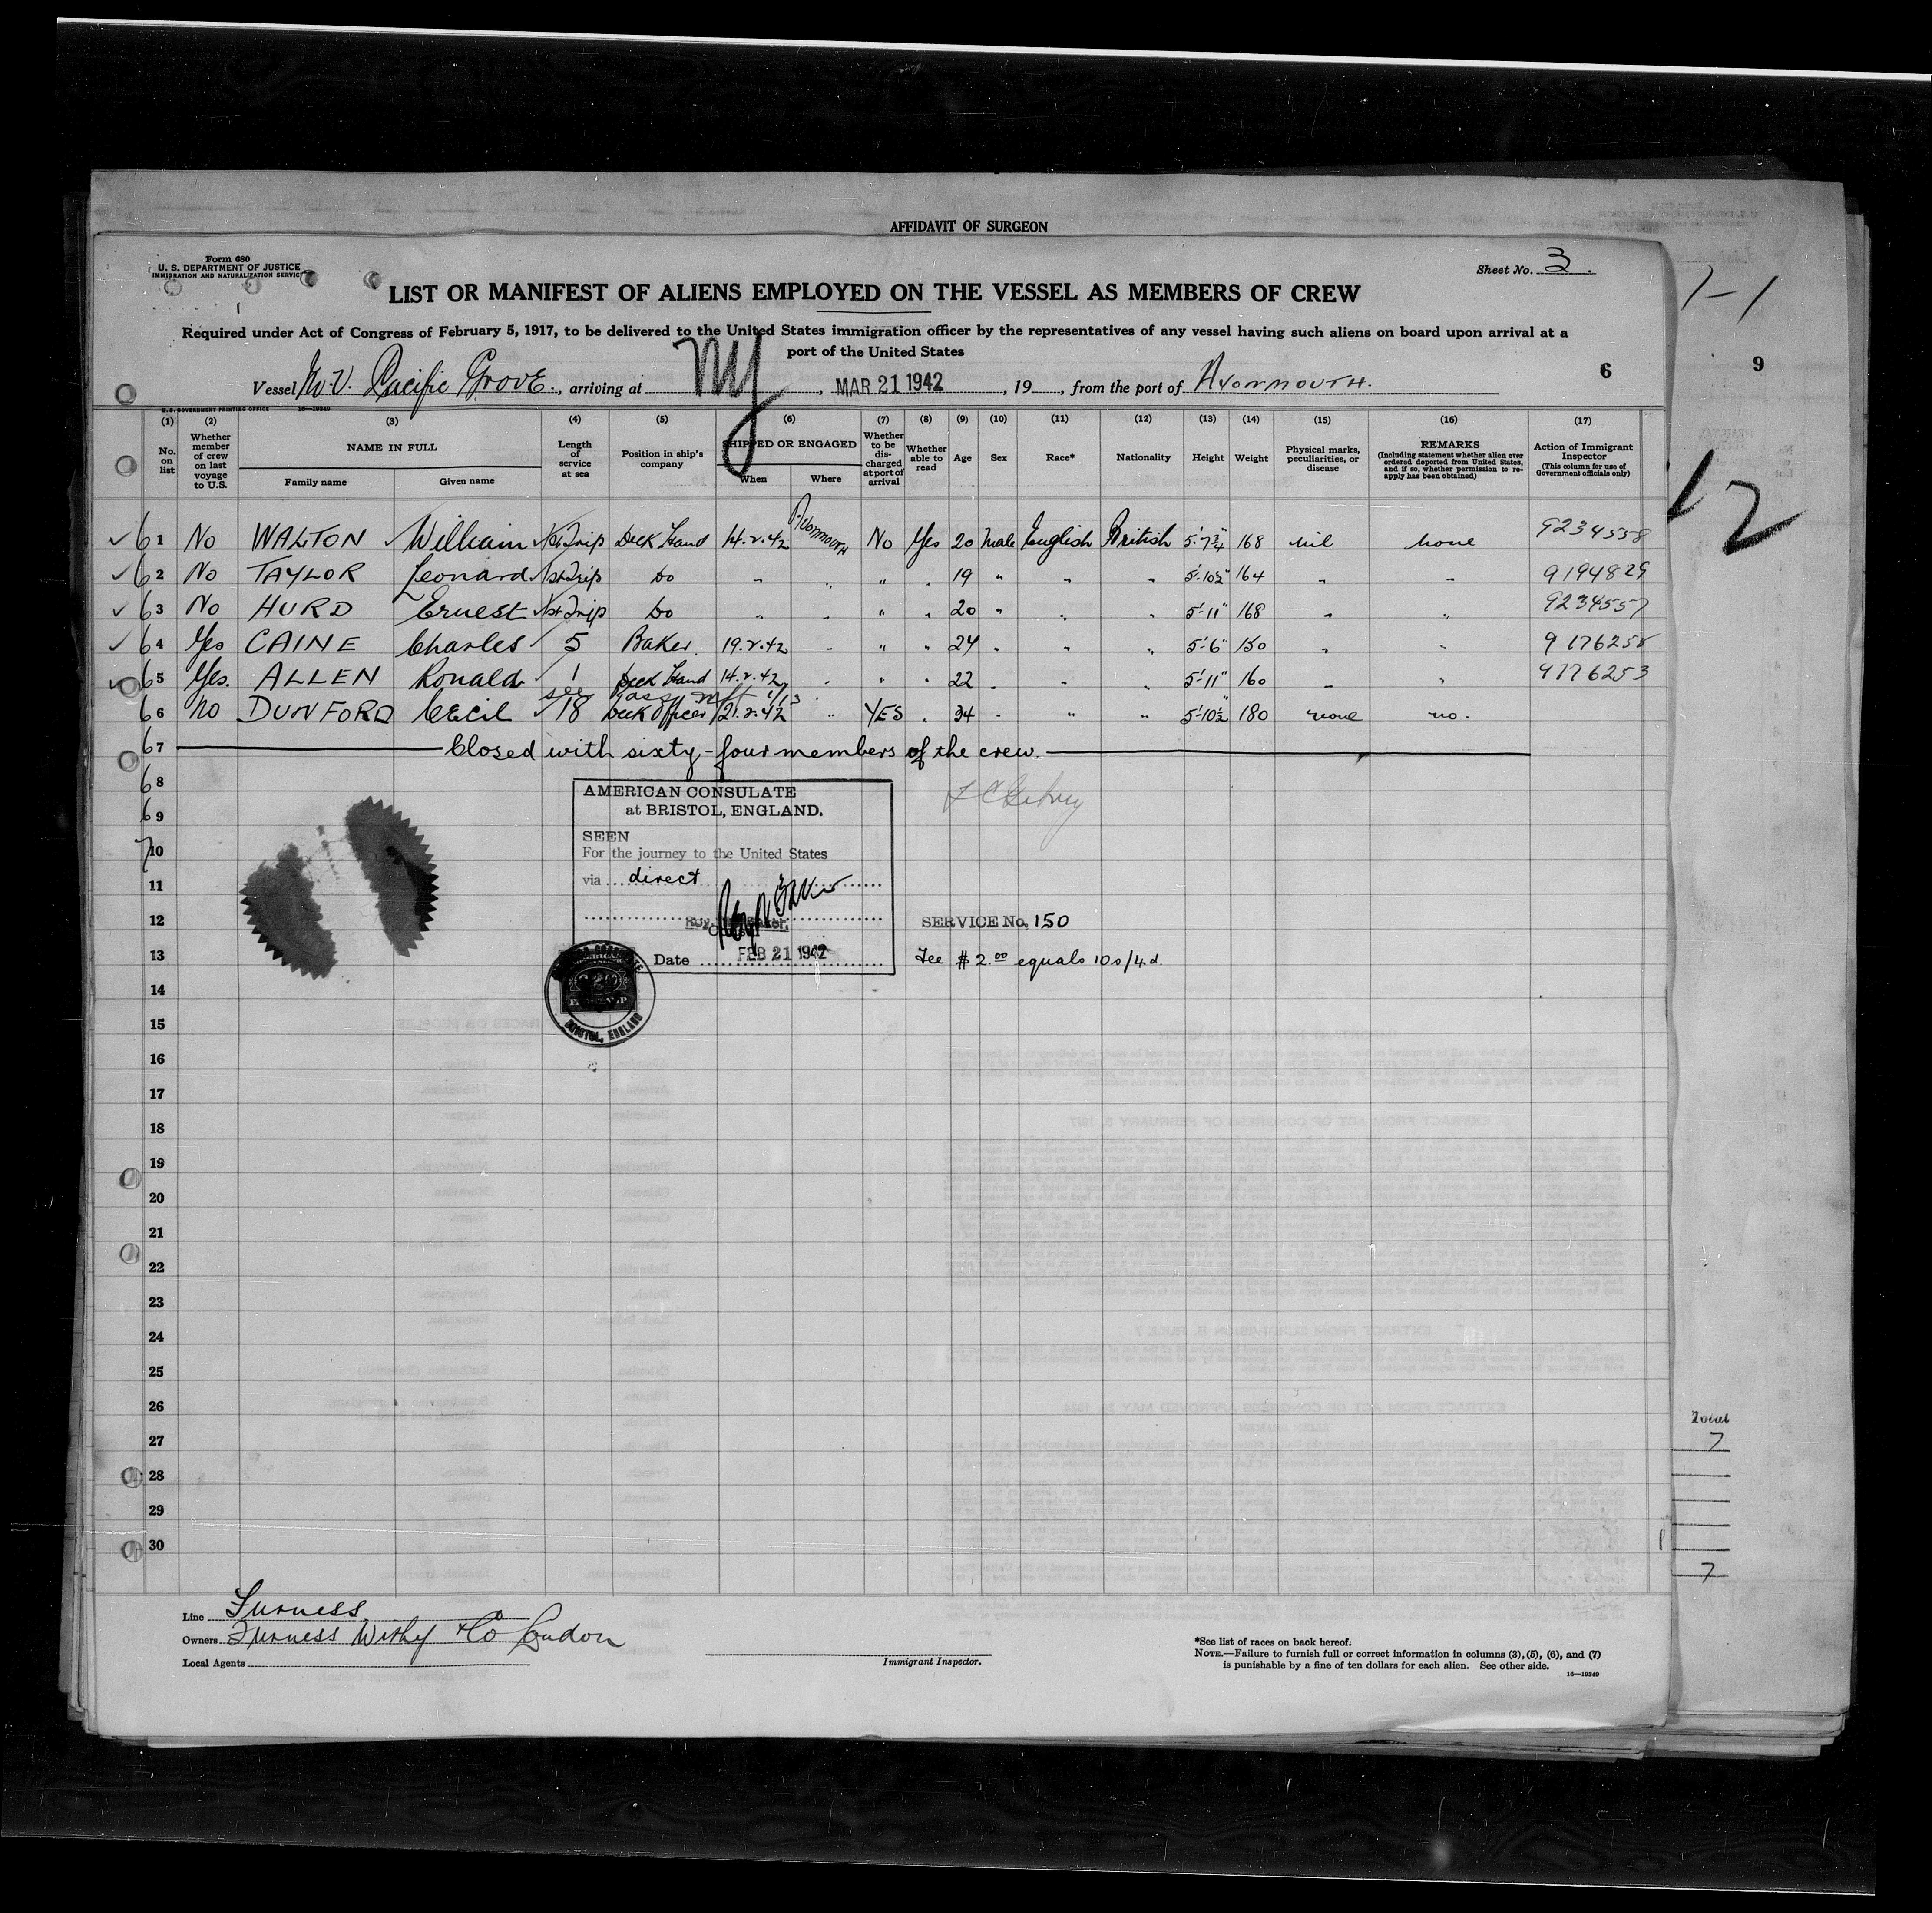 AFFIDAVIT OF SURGEON
Form 680
U. S. DEPARTMENT OF JUSTICE
IMMIGRATION AND NATURALIZATION SERVICE
Sheet No. 3.
LIST OR MANIFEST OF ALIENS EMPLOYED ON THE VESSEL AS MEMBERS OF CREW
Required under Act of Congress of February 5, 1917, to be delivered to the United States immigration officer by the representatives of any vessel having such aliens on board upon arrival at a
port of the United States
6
9
Vessel M.V. Pacific Grove, arriving at NY, MAR 21 1942, 19, from the port of AVONMOUTH.
U.S. GOVERNMENT PRINTING OFFICE 16—19349
(1) (2) (3) (4) (5) (6) (7) (8) (9) (10) (11) (12) (13) (14) (15) (16) (17)
No. on list
Whether member of crew on last voyage to U.S.
NAME IN FULL
Family name
Given name
Length of service at sea
Position in ship's company
SHIPPED OR ENGAGED
When
Where
Whether to be discharged at port of arrival
Whether able to read
Age
Sex
Race*
Nationality
Height
Weight
Physical marks, peculiarities, or disease
REMARKS
(Including statement whether alien ever ordered deported from United States, and if so, whether permission to reapply has been obtained)
Action of Immigrant Inspector
(This column for use of Government officials only)
61 No WALTON William 1st Trip Deck Hand 14.2.42 Avonmouth No Yes 20 Male English British 5'-7¾" 168 nil None 9234558
62 No TAYLOR Leonard 1st Trip Do " " " " 19 " " " 5'-10½" 164 " " 9194829
63 No HURD Ernest 1st Trip Do " " " " 20 " " " 5'-11" 168 " " 9234557
64 Yes CAINE Charles 5 Baker 19.2.42 " " " 24 " " " 5'-6" 150 " "
65 Yes. ALLEN Ronald 1 Deck Hand 14.2.42 " " " 22 " " " 5'-11" 160 " " 9176253
see Pass mft 1/13
66 no DUNFORD Cecil 18 Deck Officer 21.2.42 " YES " 34 " " " 5'-10½" 180 none no.
67 Closed with sixty-four members of the crew.
68
69
70
AMERICAN CONSULATE
at BRISTOL, ENGLAND.
SEEN
For the journey to the United States
via direct
Date FEB 21 1942
SERVICE No. 150
Fee $2.00 equals 10s/4d.
BRISTOL, ENGLAND
11
12
13
14
15
16
17
18
19
20
21
22
23
24
25
26
27
28
29
30
Total
7
7
Line Furness
Owners Furness Withy & Co London
Local Agents
Immigrant Inspector.
*See list of races on back hereof.
NOTE.—Failure to furnish full or correct information in columns (3), (5), (6), and (7)
is punishable by a fine of ten dollars for each alien. See other side.
16—19349
1-1
12